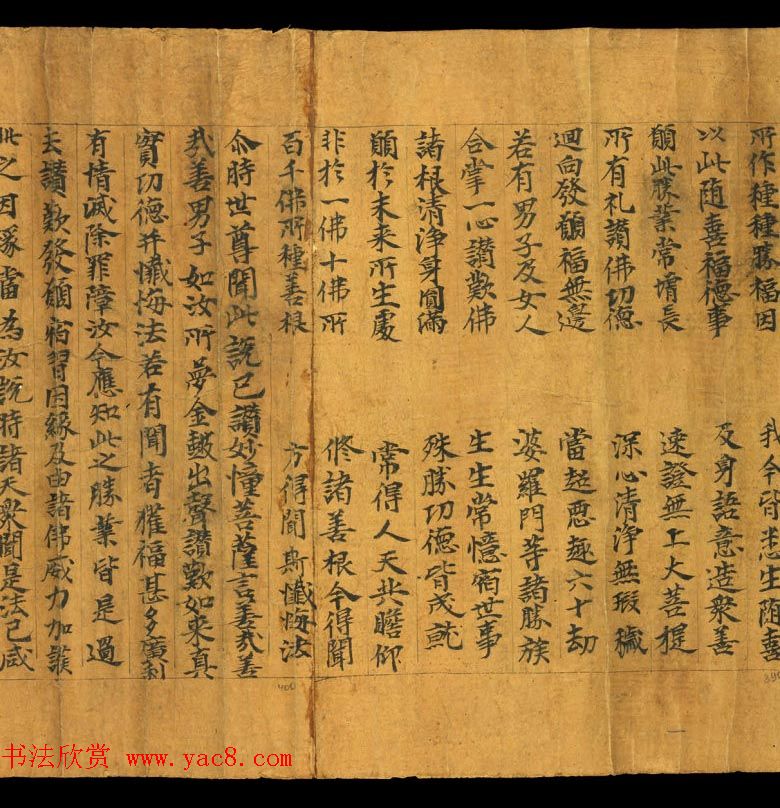 所作種種勝福因 我今皆悉生隨喜
以此随喜福德事 及身語意造衆善
願此勝業常增長 速證無上大菩提
所有礼讃佛功德 深心清淨無瑕穢
迴向發願福無邊 當超惡趣六十劫
若有男子及女人 婆羅門等諸勝族
合掌一心讃歎佛 生生常憶宿世事
諸根清淨身圓滿 殊勝功德皆成就
願於未来所生處 常得人天共瞻仰
非於一佛十佛所 修諸善根今得聞
百千佛所種善根 方得聞斯懺悔法
尒時世尊聞此說已讃妙幢菩薩言善哉善
哉善男子如汝所夢金皷出聲讃歎如来真
實功德并懺悔法若有聞者獲福甚多廣利
有情滅除罪障汝今應知此之勝業皆是過
去讃歎發願宿習因緣及由諸佛威力加護
此之因緣當為汝說時諸天衆聞是法已咸
400
390
书法欣赏 www.yac8.com